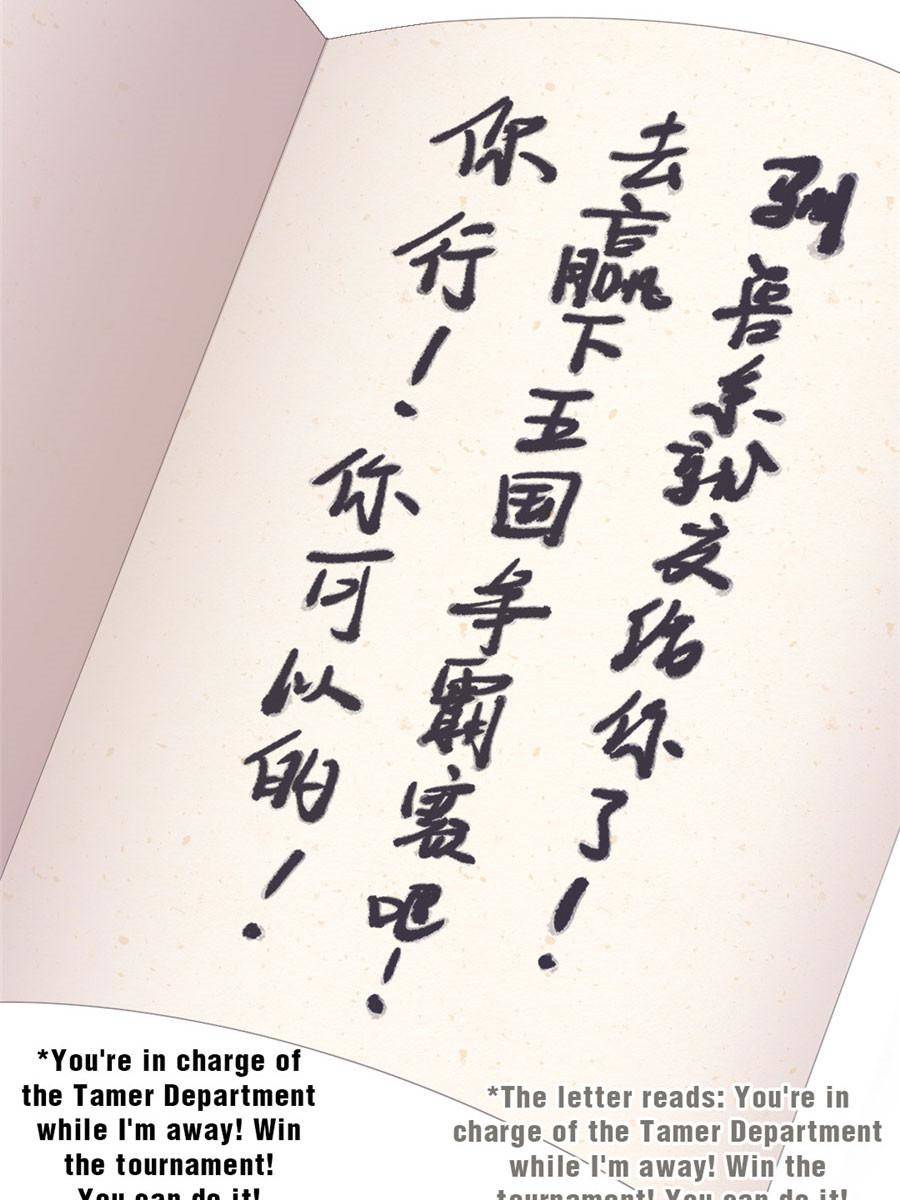 驯兽系就交给你了！
去赢下五国争霸赛吧！
你行！你可以的！
*You're in charge of
the Tamer Department
while I'm away! Win
the tournament!
You can do it!
*The letter reads: You're in
charge of the Tamer Department
while I'm away! Win the
tournament! You can do it!